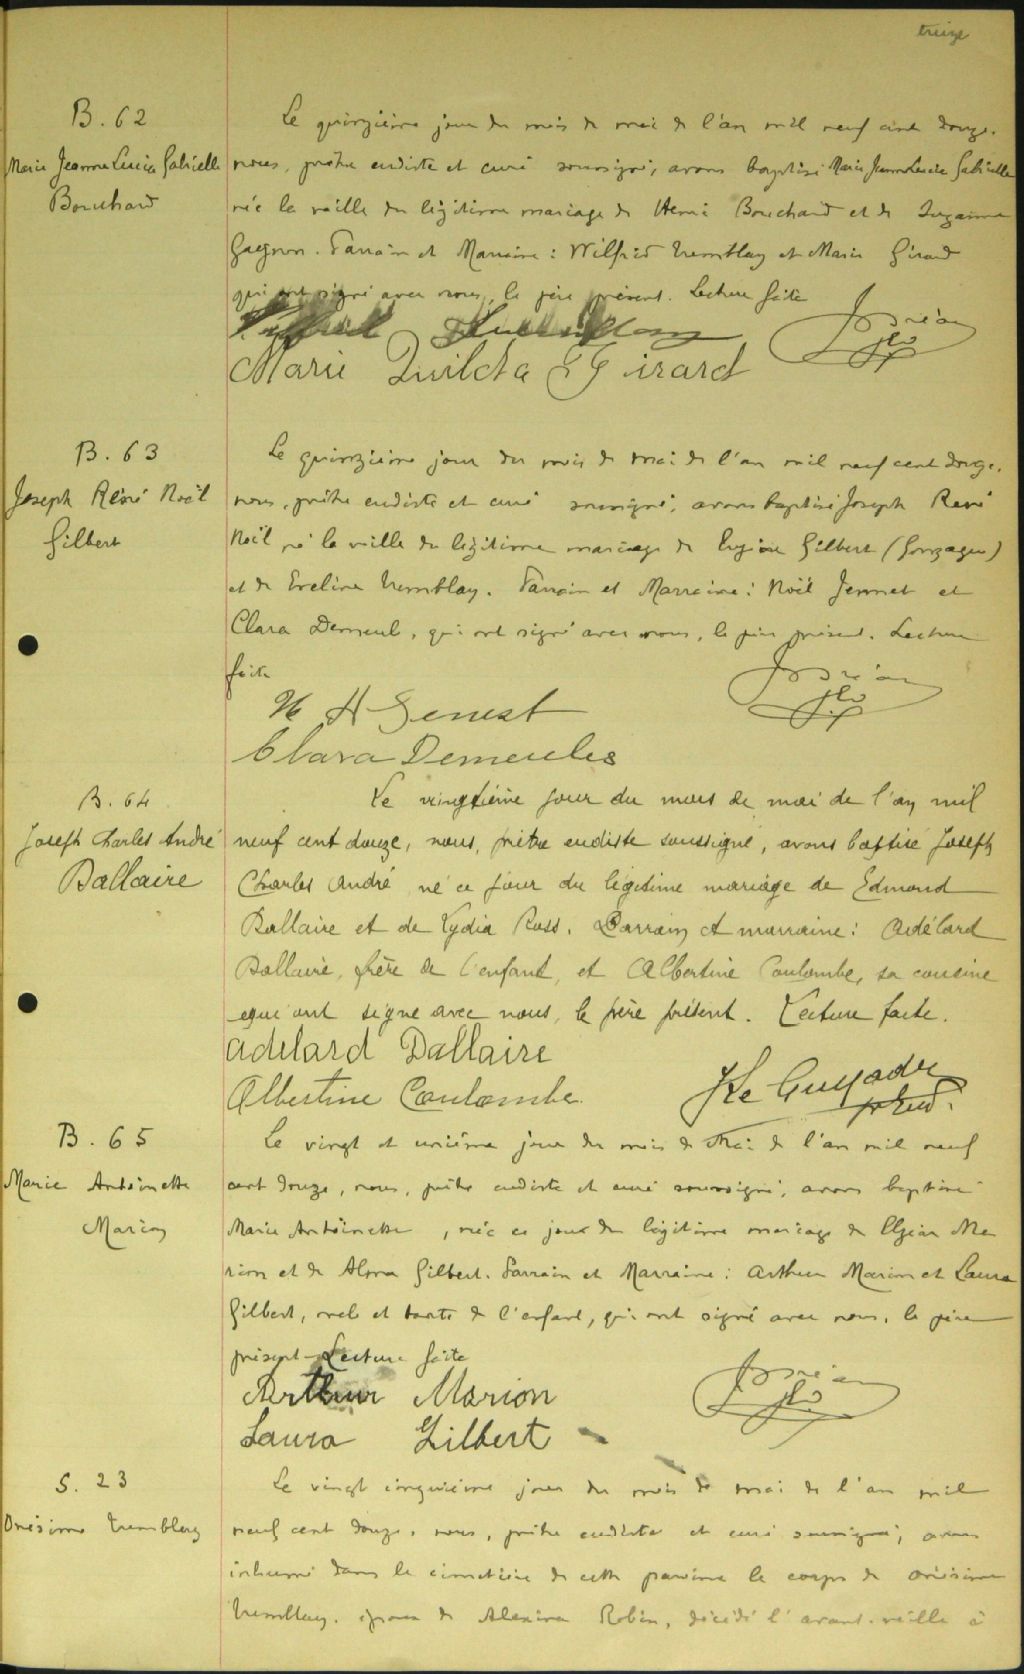 treize
B. 62
Marie Jeanne Lucie Gabrielle
Bouchard
Le quinzième jour du mois de mai de l'an mil neuf cent douze,
nous, prêtre eudiste et curé soussigné, avons baptisé Marie Jeanne Lucie Gabrielle
née la veille du légitime mariage de Henri Bouchard et de Suzanne
Gagnon. Parrain et Marraine : Wilfrid Tremblay et Marie Girard
qui ont signé avec nous, le père présent. Lecture faite
Wilfrid Tremblay
Marie Quilda Girard
B. 63
Joseph Réné Noël
Gilbert
Le quinzième jour du mois de mai de l'an mil neuf cent douze,
nous, prêtre eudiste et curé soussigné, avons baptisé Joseph René
Noël né la veille du légitime mariage de Gilbert (Gonzague)
et de Eveline Tremblay. Parrain et Marraine : Noël Jennet et
Clara Demeul, qui ont signé avec nous, le père présent. Lecture
faite
N H Genest
Clara Demeules
B. 64
Joseph Charles André
Dallaire
Le vingtième jour du mois de mai de l'an mil
neuf cent douze, nous, prêtre eudiste soussigné, avons baptisé Joseph
Charles André né ce jour du légitime mariage de Edmond
Dallaire et de Lydia Ross. Parrain et marraine : Adélard
Dallaire, frère de l'enfant, et Albertine Coulombe, sa cousine
qui ont signé avec nous, le père présent. Lecture faite.
Adélard Dallaire
Albertine Coulombe.
J Le Guyader
ptr eud.
B. 65
Marie Antoinette
Marion
Le vingt et unième jour du mois de Mai de l'an mil neuf
cent douze, nous, prêtre eudiste et curé soussigné, avons baptisé
Marie Antoinette, née ce jour du légitime mariage de Elzéar Ma
rion et de Alma Gilbert. Parrain et Marraine : Arthur Marion et Laura
Gilbert, oncle et tante de l'enfant, qui ont signé avec nous, le père
présent - Lecture faite
Arthur Marion
Laura Gilbert
S. 23
Onésime Tremblay
Le vingt cinquième jour du mois de mai de l'an mil
neuf cent douze, nous, prêtre eudiste et curé soussigné, avons
inhumé dans le cimetière de cette paroisse le corps de Onésime
Tremblay, époux de Alexina Robin, décédé l'avant-veille à